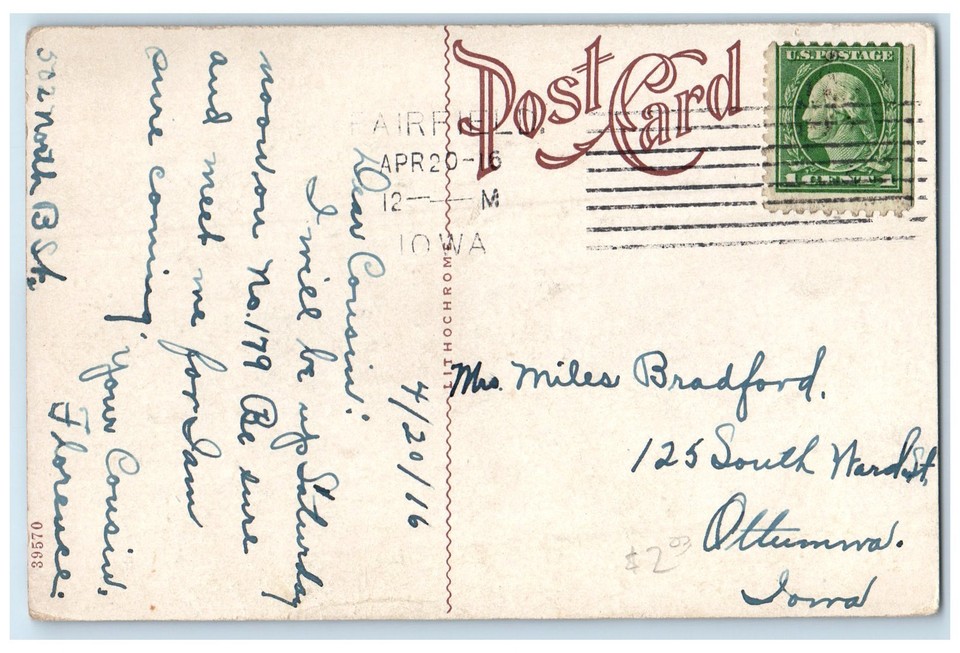 Post Card
U.S. POSTAGE
1 CENTS 1
FAIRFIELD.
APR 20-16
12 — M
IOWA
LITHOCHROM
4/20/16
Dear Cousin:
I will be up Saturday
noon on No. 179 Be sure
and meet me for I am
coming
Your Cousin.
Florence.
North B St.
39570
Mrs. Miles Bradford.
125 South Ward St
Ottumwa.
Iowa
$2.00